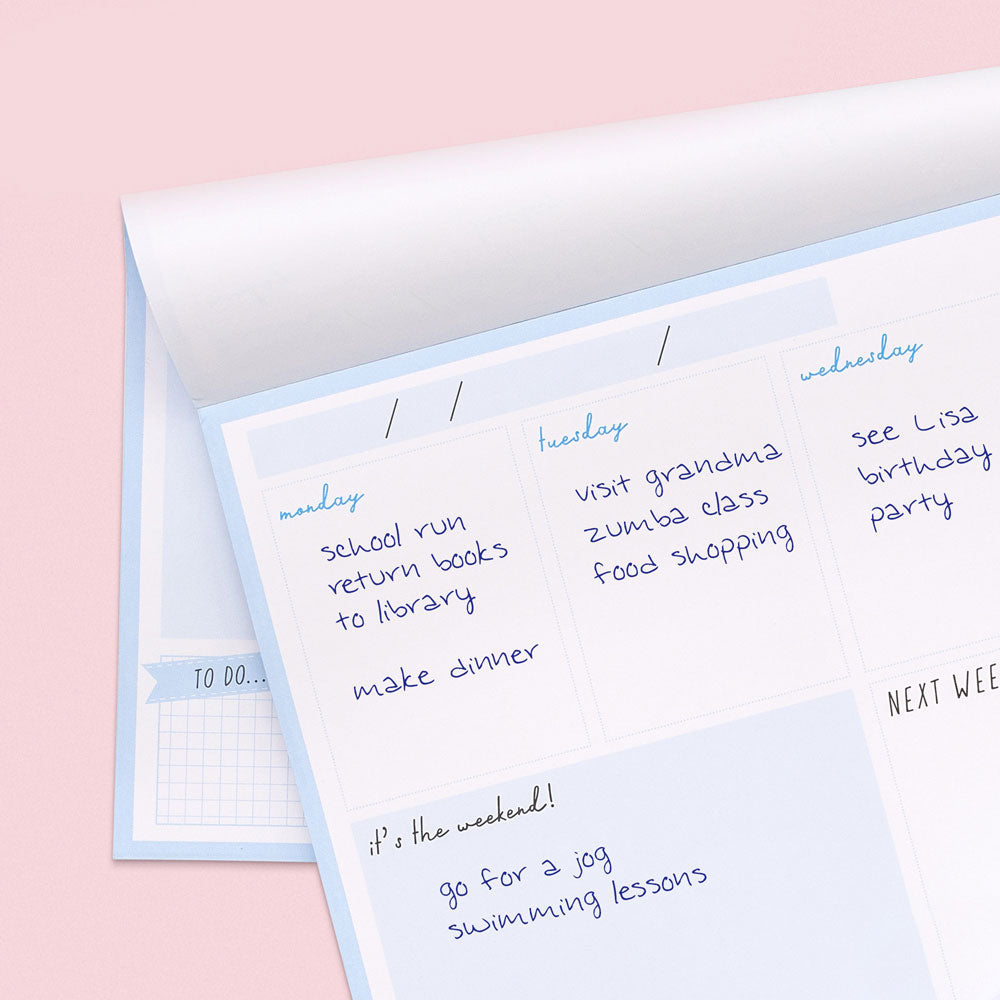 / / /
monday
school run
return books
to library
make dinner
tuesday
visit grandma
zumba class
food shopping
wednesday
see Lisa
birthday
party
TO DO...
it's the weekend!
go for a jog
swimming lessons
NEXT WEE